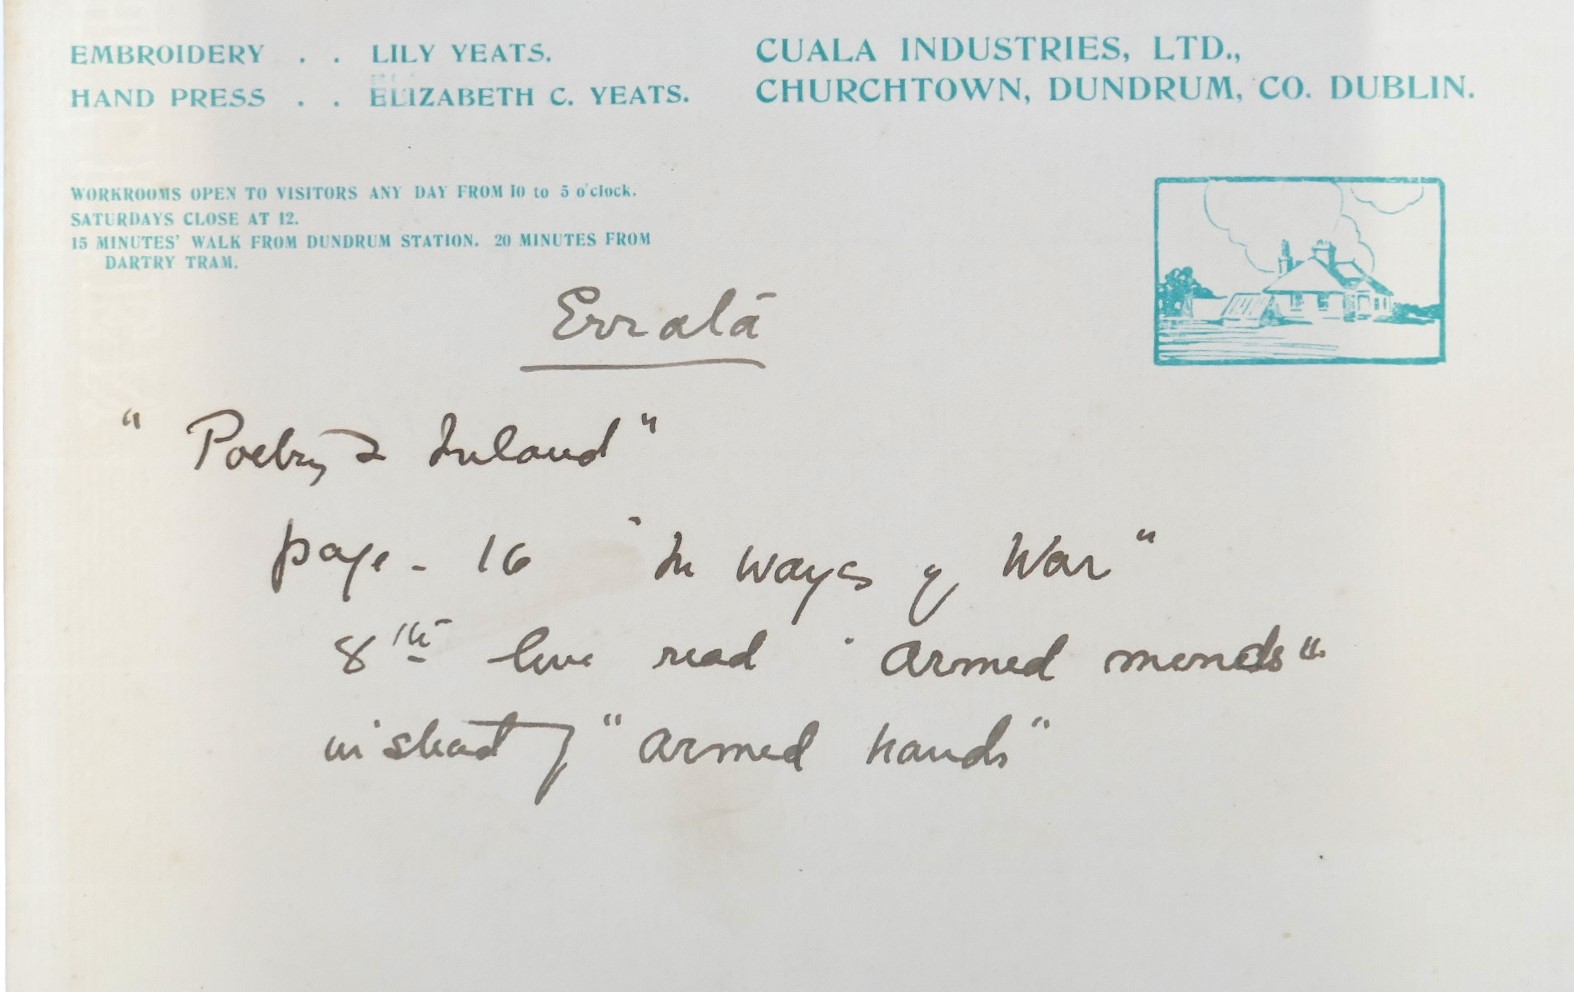 EMBROIDERY . . LILY YEATS.
HAND PRESS . . ELIZABETH C. YEATS.
CUALA INDUSTRIES, LTD.,
CHURCHTOWN, DUNDRUM, CO. DUBLIN.
WORKROOMS OPEN TO VISITORS ANY DAY FROM 10 to 5 o'clock.
SATURDAYS CLOSE AT 12.
15 MINUTES' WALK FROM DUNDRUM STATION. 20 MINUTES FROM
DARTRY TRAM.
Errata
"Poetry & Ireland"
page - 16 "In ways of War"
8th line read "armed minds"
instead of "armed hands"